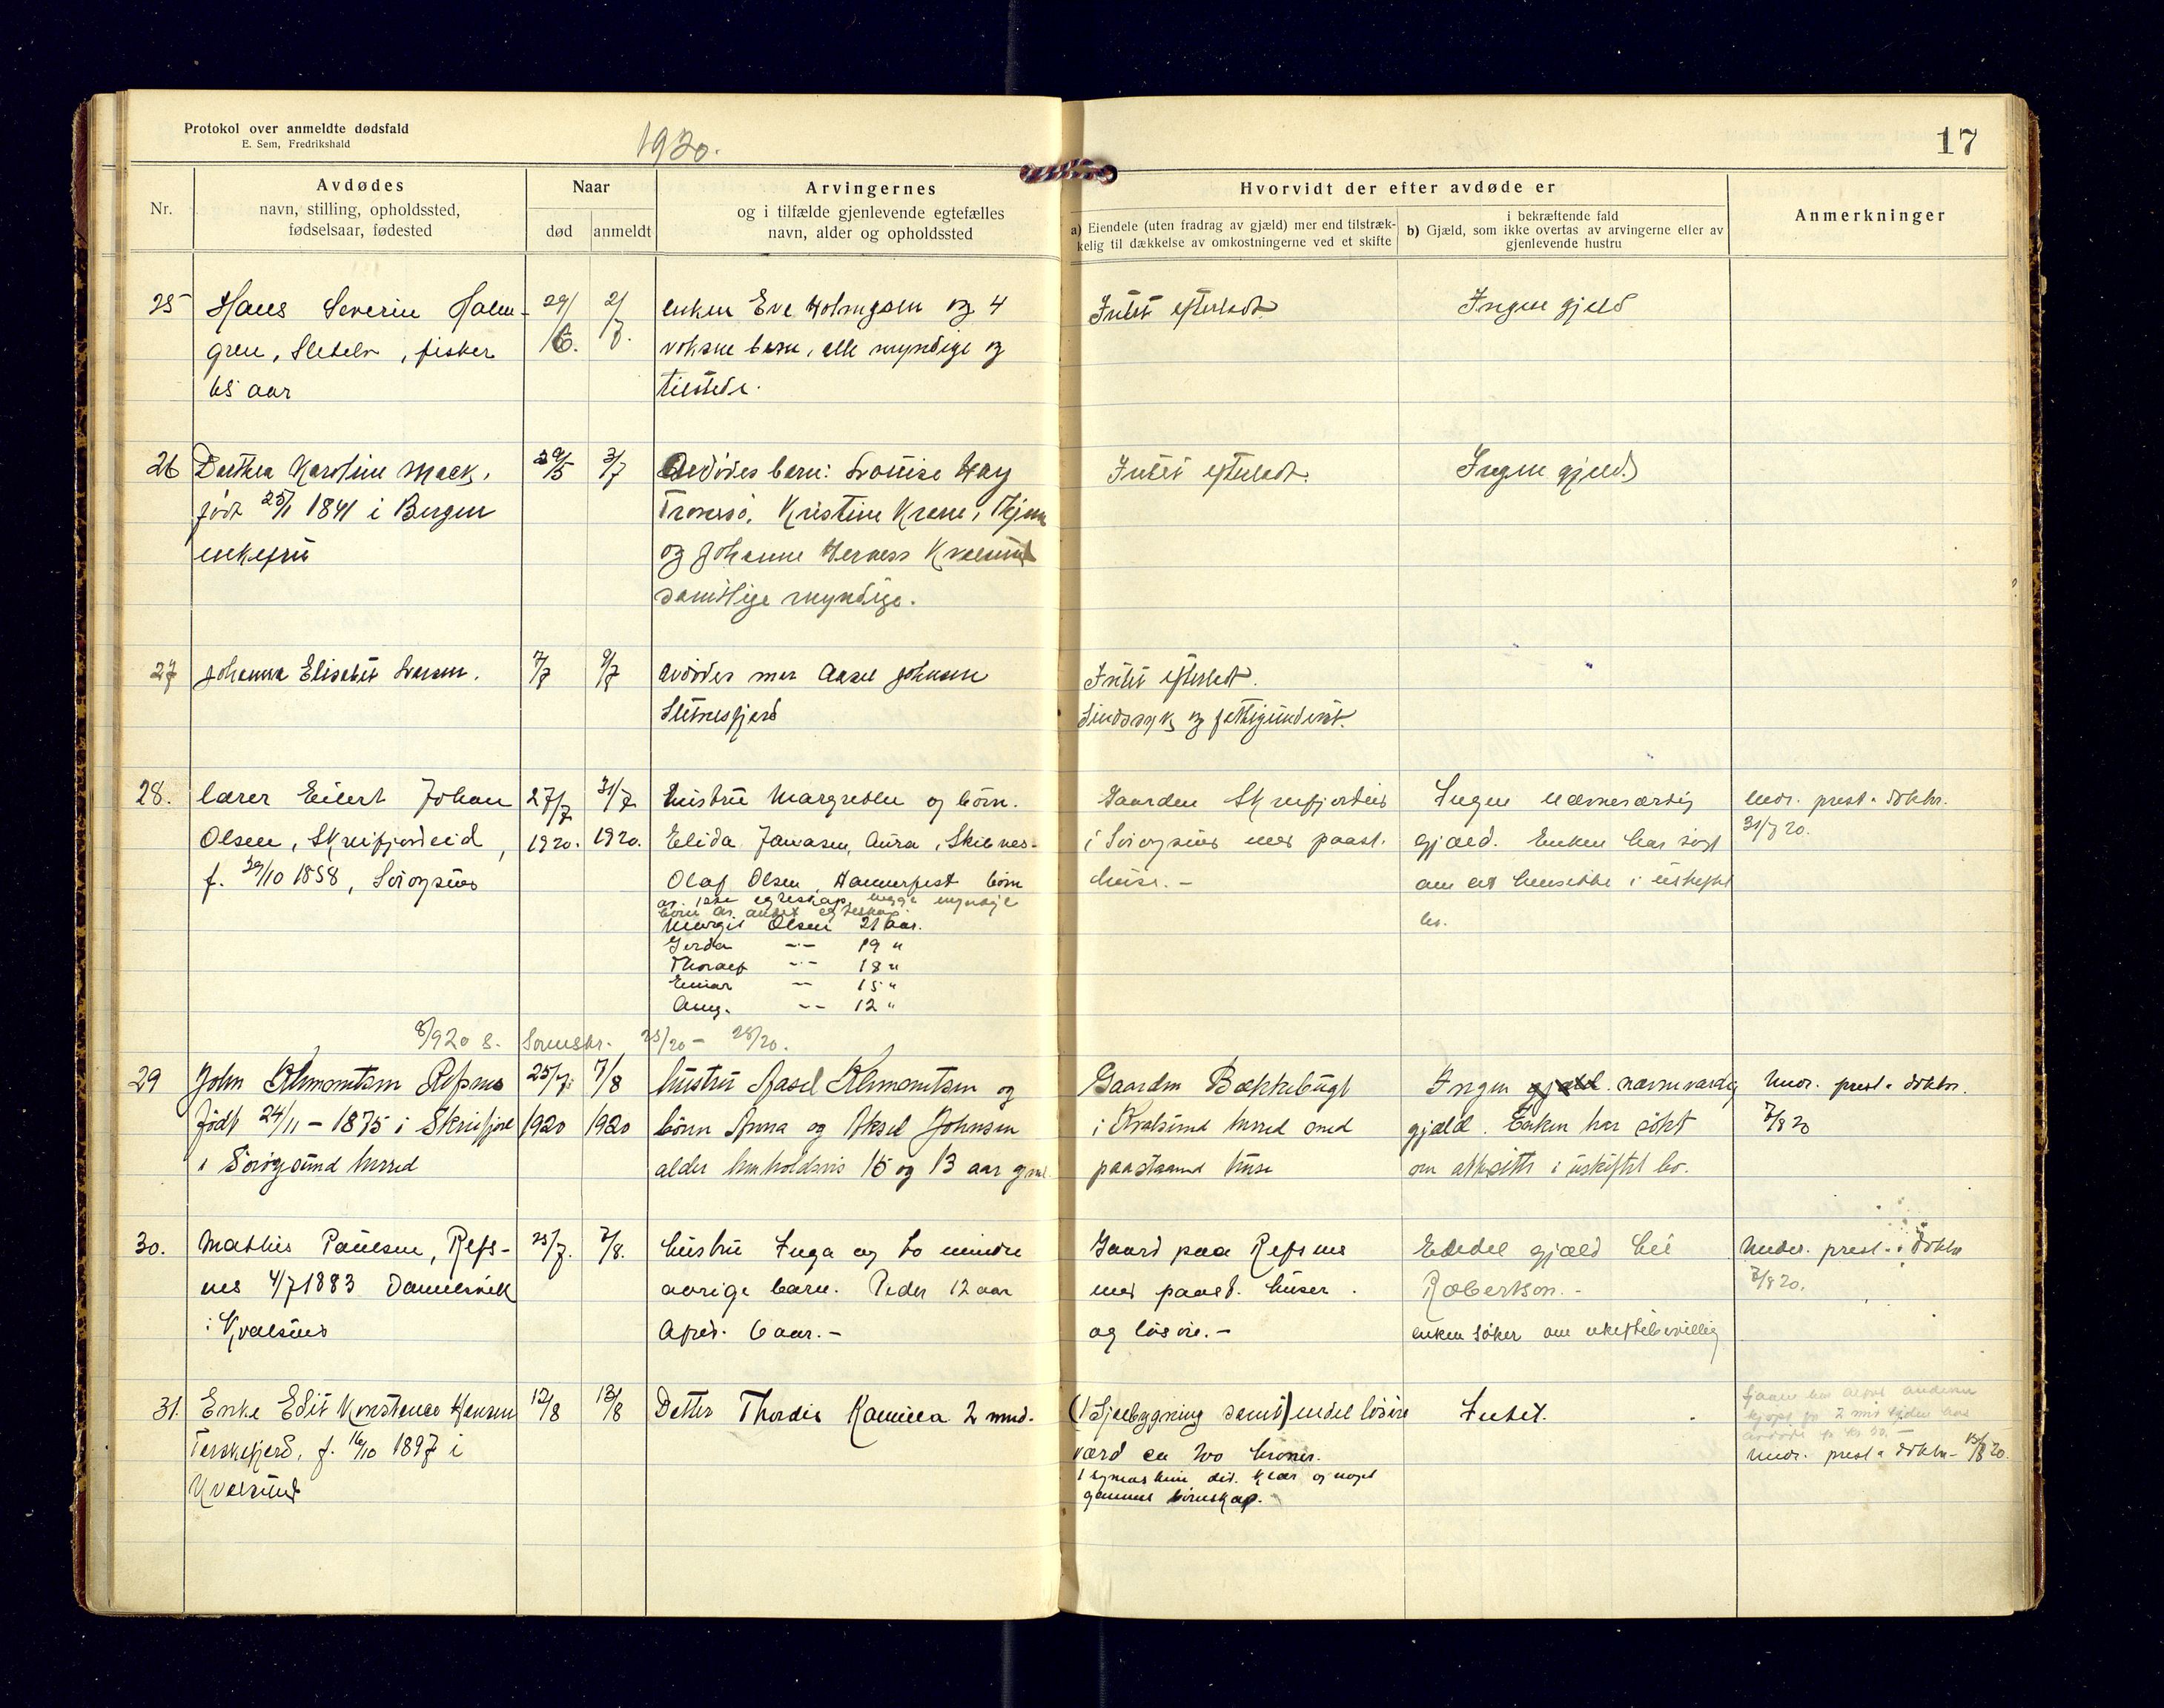 Protokol over anmeldte dødsfald
E. Sem, Fredrikshald
1920.
17
Nr.
Avdødes
navn, stilling, opholdssted,
fødselsaar, fødested
Naar
død
anmeldt
Arvingernes
og i tilfælde gjenlevende egtefælles
navn, alder og opholdssted
Hvorvidt der efter avdøde er
a) Eiendele (uten fradrag av gjæld) mer end tilstræk-
kelig til dækkelse av omkostningerne ved et skifte
i bekræftende fald
b) Gjæld, som ikke overtas av arvingerne eller av
gjenlevende hustru
Anmerkninger
25 Hans Severin Holm-
gren, , fisker
65 aar
29/6. 2/7.
enken Eva Holmgren og 4
voksne barn, alle myndige og
tilstede.
Intet efterladt.
Ingen gjeld
26 Dorthea Karoline Mack,
født 25/1 1841 i Bergen
enkefru
29/5 3/7
Avdødes barn: Louise Hay
Tromsø, Kristine Krane,
og Johanne Herness Kvalsund
samtlige myndige.
Intet efterladt.
Ingen gjeld.
27 Johanna Elisabet Larsen.
7/7 9/7
avdødes mor Aasel Johnsen
Sletnesfjord
Intet efterladt.
Sindssyk og fattigunderst.
28. lærer Eilert Johan
Olsen, Skreifjordeid,
f. 30/10 1858, Sørøysund
27/7 1920. 31/7 1920.
hustru Margrethe og börn.
Elida Jonassen, Aura, Skibnes-
Olaf Olsen, Hammerfest börn
av 1ste egteskap, begge myndige
börn av andet egteskap.
Margit Olsen 21 aar.
Gerda -"- 19 "
Thoralf -"- 18 "
Einar -"- 15 "
Aug. -"- 12 "
Gaarden Skreifjordeid
i Sørøysund med paast.
huse. -
Ingen nævneværdig
gjæld. Enken har søgt
om at hensitte i uskiftet
bo.
Undr. prest & doktor.
31/7 20.
8/9 20 s. Sorenskr.
29 John Klemmetsen Refsnes
født 24/11 - 1875 i Skreifjord
i Sørøysund herred
25/7. 1920 7/8 1920
hustru Aasel Klemmetsen og
börn Anna og Aksel Johnsen
alder henholdsvis 15 og 13 aar gml.
Gaarden Bækkebugt
i Kvalsund herred med
paastaaende huse
Ingen gjæld nævneværdig
gjæld. Enken har søkt
om at sitte i uskiftet bo.
Undr. prest & doktor.
7/8 20
30. Mathis Paulsen, Refs-
nes 4/7 1883
i Kvalsund
25/7. 7/8.
hustru Inga og to mindre
aarige barn. Peder 12 aar
Alfred. 6 aar. -
Gaard paa Refsnes
med paast. huser.
og løsøre. -
Endel gjæld hos
Robertson. -
enken søker om uskiftebevilling
Under. prest & doktor
7/8 20.
31. Enke Edit Konstance Hansen
Torskefjord, f. 16/10 1897 i
Kvalsund
12/8 13/8
Datter Thordis Kamilla 2 mnd.
(1 Sjøbygning samt) endel løsøre
værd ca 200 kroner.
1 symaskin div. klær og noget
gammel
Intet.
Undr. prest & doktor - 13/8 20.